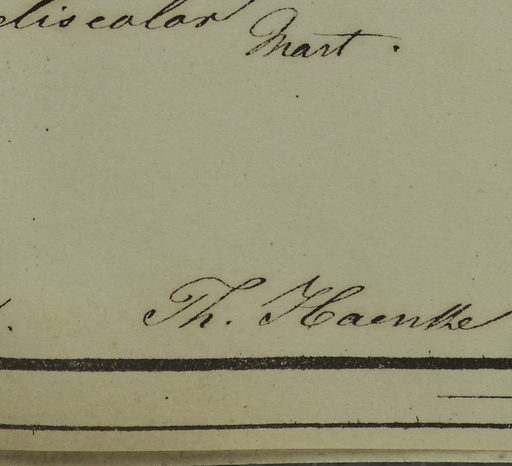 discolor Mart.
Th. Haenke